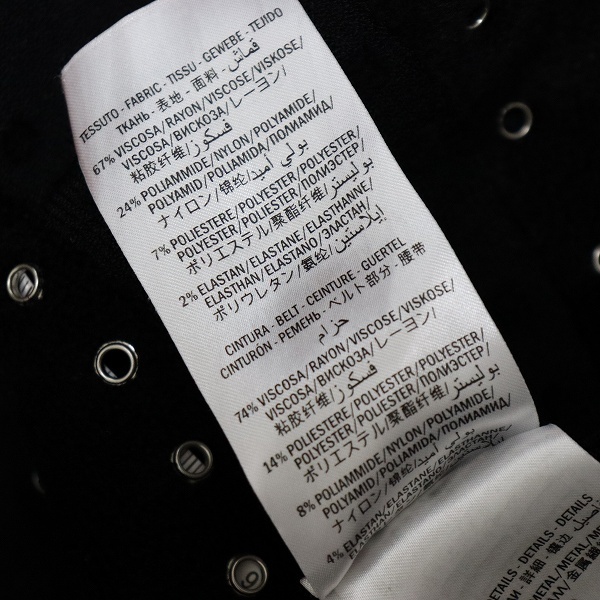 TESSUTO - FABRIC - TISSU - GEWEBE - TEJIDO
ТКАНЬ - 表地 - 面料 - قماش
67% VISCOSA/RAYON/VISCOSE/VISKOSE/
VISCOSA/ВИСКОЗА/レーヨン/
粘胶纤维/فسكوز
24% POLIAMMIDE/NYLON/POLYAMIDE/
POLYAMID/POLIAMIDA/ПОЛИАМИД/
ナイロン/锦纶/بولي أميد
7% POLIESTERE/POLYESTER/POLYESTER/
POLYESTER/POLIÉSTER/ПОЛИЭСТЕР/
ポリエステル/聚酯纤维/بوليستر
2% ELASTAN/ELASTANE/ELASTHANNE/
ELASTHAN/ELASTANO/ЭЛАСТАН/
ポリウレタン/氨纶/إيلاستين
CINTURA - BELT - CEINTURE - GUERTEL
CINTURÓN - РЕМЕНЬ - ベルト部分 - 腰带
حزام
74% VISCOSA/RAYON/VISCOSE/VISKOSE/
VISCOSA/ВИСКОЗА/レーヨン/
粘胶纤维/فسكوز
14% POLIESTERE/POLYESTER/POLYESTER/
POLYESTER/POLIÉSTER/ПОЛИЭСТЕР/
ポリエステル/聚酯纤维/بوليستر
8% POLIAMMIDE/NYLON/POLYAMIDE/
POLYAMID/POLIAMIDA/ПОЛИАМИД/
ナイロン/锦纶/بولي أميد
4% ELASTAN/ELASTANE/ELASTHANNE/
- DETAILS - DETAILS
- 详细 - 镶边
METAL/METAL/
/金属